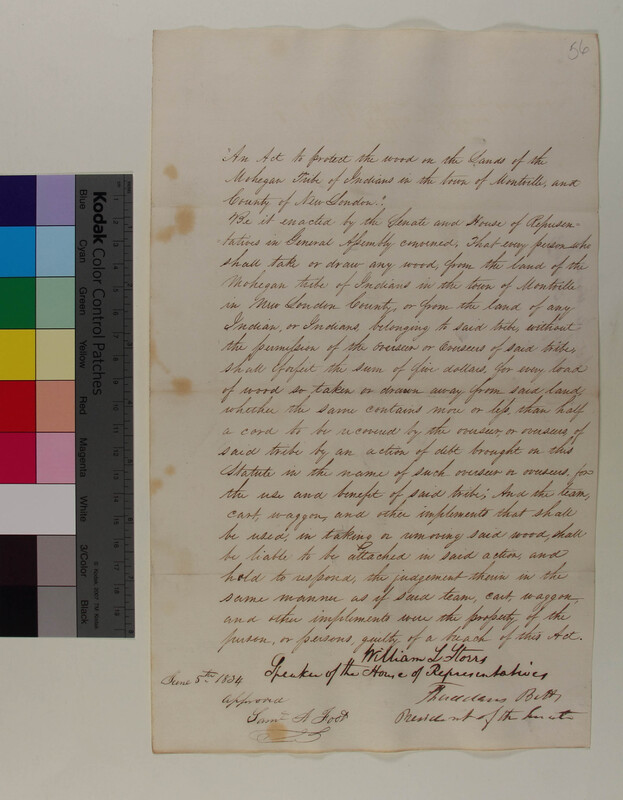 56
"An Act to protect the wood on the Lands of the
Mohegan Tribe of Indians in the town of Montville, and
County of New London."
Be it enacted by the Senate and House of Represen-
tatives in General Assembly convened, That every person who
shall take or draw any wood, from the land of the
Mohegan tribe of Indians in the town of Montville
in New London County, or from the land of any
Indian, or Indians, belonging to said tribe, without
the permission of the overseer or Overseers of said tribe,
shall forfeit the sum of five dollars, for every load
of wood so taken or drawn away from said land,
whether the same contains more or less, than half
a cord to be recovered by the overseer, or overseers, of
said tribe by an action of debt brought on this
Statute in the name of such overseer or overseers, for
the use and benefit of said tribe; And the team,
cart, waggon, and other implements that shall
be used, in taking or removing said wood, shall
be liable to be attached in said action, and
hold to respond, the judgement therein in the
same manner as if said team, cart, waggon,
and other implements were the property, of the
person, or persons, guilty of a breach of this Act.
William L Storrs
Speaker of the House of Representatives
June 5th 1834
Thaddeus Betts
President of the Senate
approved
Saml A Foot
Kodak Color Control Patches
Blue
Cyan
Green
Yellow
Red
Magenta
White
3/Color
Black
© Kodak, 2007 TM: Kodak